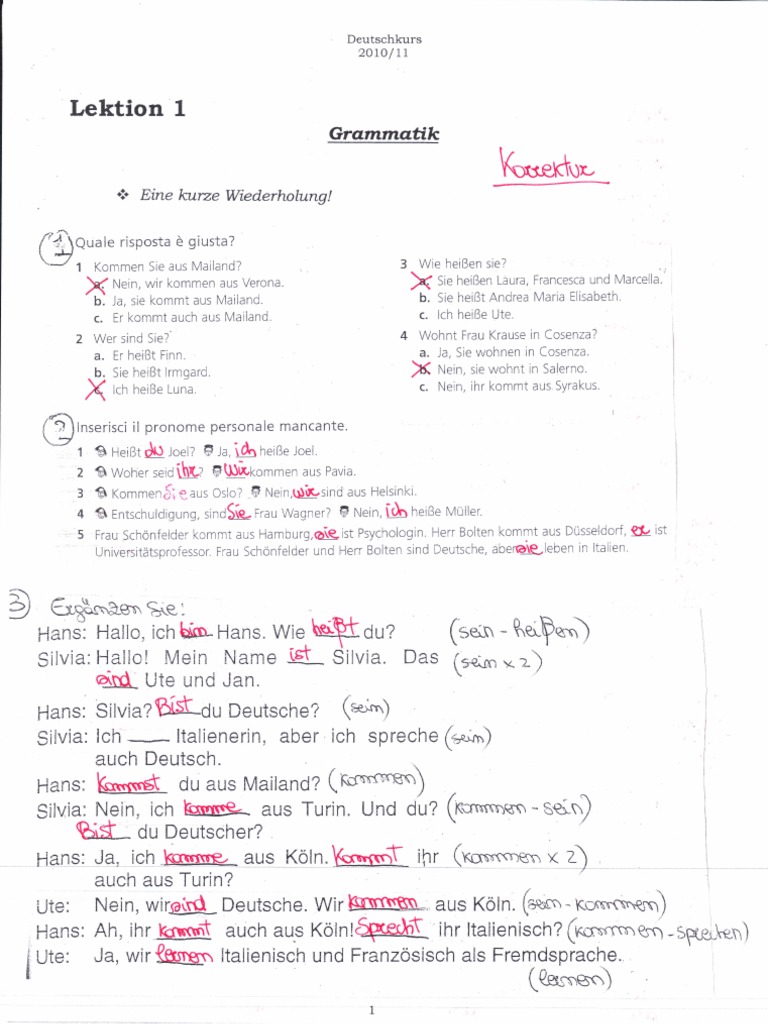 Deutschkurs
2010/11
Lektion 1
Grammatik
Korrektur
❖ Eine kurze Wiederholung!
1 Quale risposta è giusta?
1 Kommen Sie aus Mailand?
a. Nein, wir kommen aus Verona.
b. Ja, sie kommt aus Mailand.
c. Er kommt auch aus Mailand.
2 Wer sind Sie?
a. Er heißt Finn.
b. Sie heißt Irmgard.
c. Ich heiße Luna.
3 Wie heißen sie?
a. Sie heißen Laura, Francesca und Marcella.
b. Sie heißt Andrea Maria Elisabeth.
c. Ich heiße Ute.
4 Wohnt Frau Krause in Cosenza?
a. Ja, Sie wohnen in Cosenza.
b. Nein, sie wohnt in Salerno.
c. Nein, ihr kommt aus Syrakus.
2 Inserisci il pronome personale mancante.
1 Heißt du Joel? Ja, ich heiße Joel.
2 Woher seid ihr? Wir kommen aus Pavia.
3 Kommen Sie aus Oslo? Nein, wir sind aus Helsinki.
4 Entschuldigung, sind Sie Frau Wagner? Nein, ich heiße Müller.
5 Frau Schönfelder kommt aus Hamburg, sie ist Psychologin. Herr Bolten kommt aus Düsseldorf, er ist
Universitätsprofessor. Frau Schönfelder und Herr Bolten sind Deutsche, aber sie leben in Italien.
3) Ergänzen Sie:
Hans: Hallo, ich bin Hans. Wie heißt du? (sein - heißen)
Silvia: Hallo! Mein Name ist Silvia. Das (sein x 2)
sind Ute und Jan.
Hans: Silvia? Bist du Deutsche? (sein)
Silvia: Ich ___ Italienerin, aber ich spreche (sein)
auch Deutsch.
Hans: Kommst du aus Mailand? (kommen)
Silvia: Nein, ich komme aus Turin. Und du? (kommen - sein)
Bist du Deutscher?
Hans: Ja, ich komme aus Köln. Kommt ihr (kommen x 2)
auch aus Turin?
Ute: Nein, wir sind Deutsche. Wir kommen aus Köln. (sein - kommen)
Hans: Ah, ihr kommt auch aus Köln! Sprecht ihr Italienisch? (kommen - sprechen)
Ute: Ja, wir lernen Italienisch und Französisch als Fremdsprache.
(lernen)
1